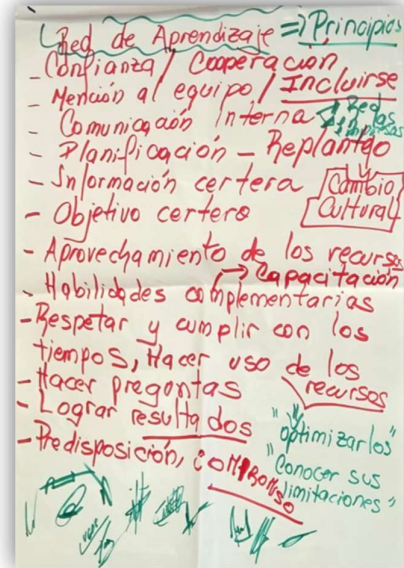 Red de Aprendizaje => Principios
- Confianza / Cooperación
- Mención al equipo / Incluirse
- Comunicación Interna → Reglas
- Planificación - Replanteo
- Información certera
Cambio
Cultural
- Objetivo certero
- Aprovechamiento de los recursos
→ Capacitación
- Habilidades complementarias
- Respetar y cumplir con los
tiempos, Hacer uso de los
recursos
- Hacer preguntas
- Lograr resultados
"optimizarlos"
- Predisposición, COMPROMISO
"Conocer sus
limitaciones"